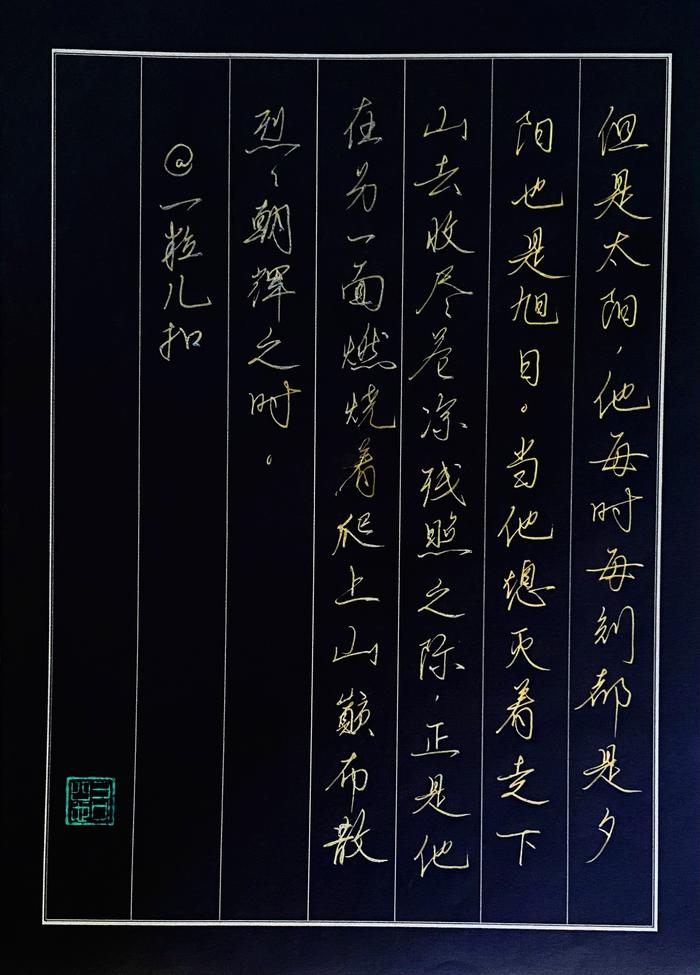 但是太阳，他每时每刻都是夕
阳也是旭日。当他熄灭着走下
山去收尽苍凉残照之际，正是他
在另一面燃烧着爬上山巅布散
烈々朝辉之时。
@一粒儿扣